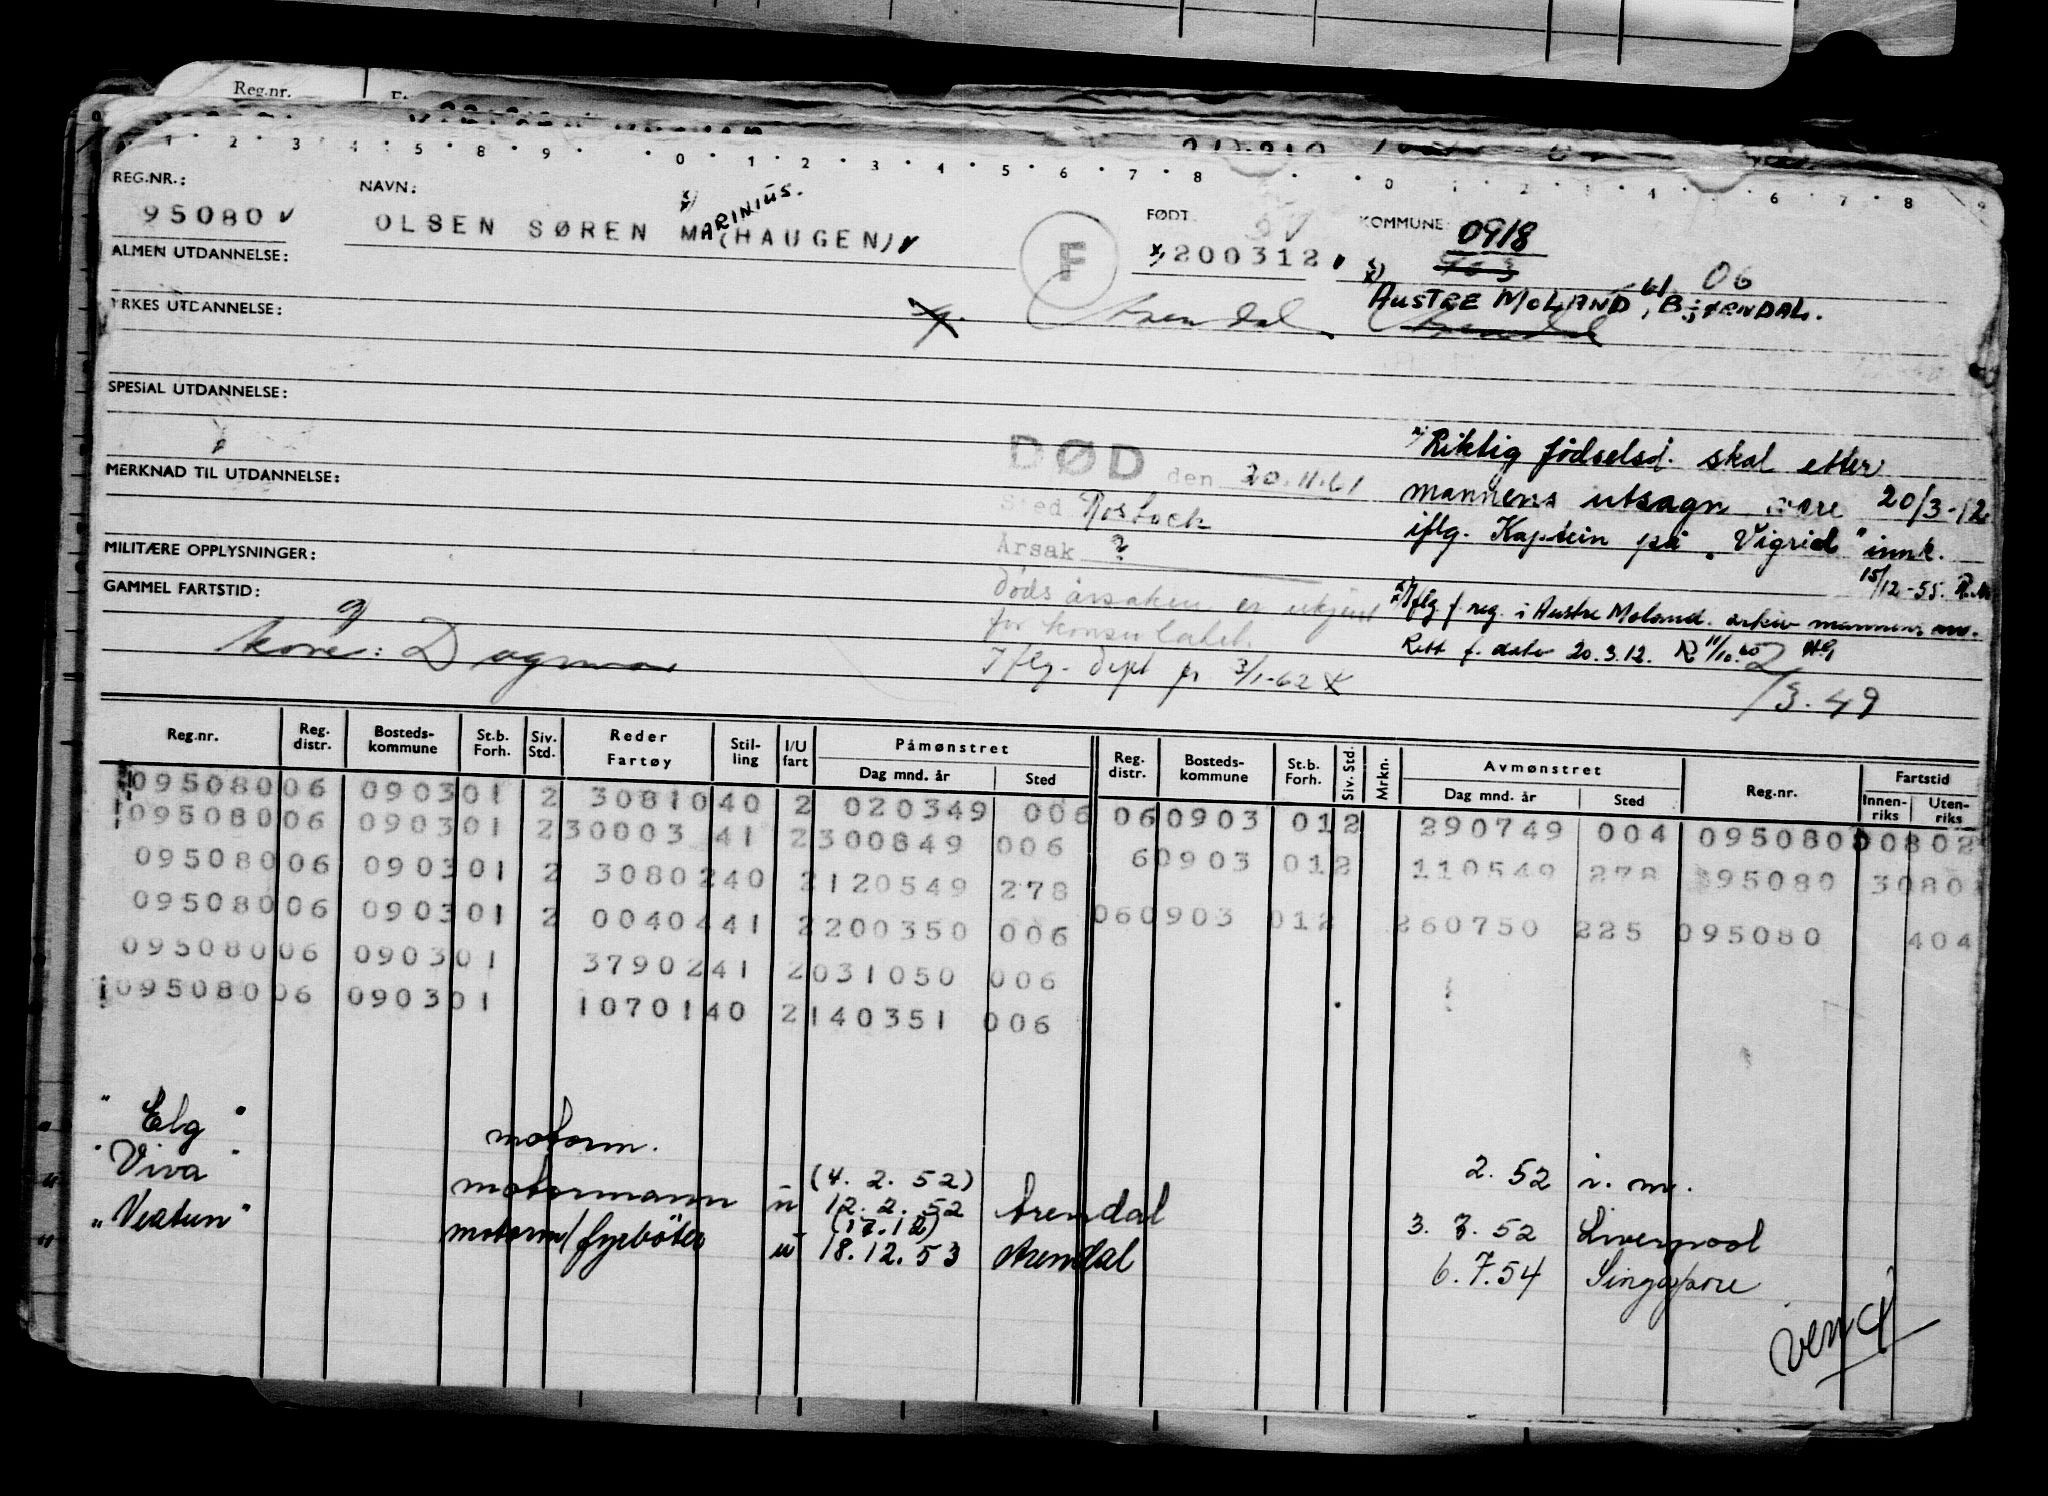 Reg.nr.
REG.NR.: NAVN: FØDT KOMMUNE: 0918
95080 OLSEN SØREN MARINIUS. (HAUGEN) F 200312
06
ALMEN UTDANNELSE: AUSTRE MOLAND,
YRKES UTDANNELSE: Arendal Arendal
SPESIAL UTDANNELSE:
MERKNAD TIL UTDANNELSE:
MILITÆRE OPPLYSNINGER:
GAMMEL FARTSTID:
kone: Dagmar
DØD den 20.11.61
Sted Rostock
Årsak ?
Dødsårsaken er ukjent
for konsulatet.
Iflg. dept pr 3/1-62
x) Riktig fødselsd. skal etter
mannens utsagn være 20/3-12
iflg. Kaptein på "Vigrid" innk.
15/12-55.
Iflg f. reg. i Austre Moland. arkiv mannens nv.
Rett f. dato 20.3.12.
2/3.49
Reg.nr. Reg. distr. Bosteds-kommune St.b. Forh. Siv. Std. Reder Fartøy Stil-ling I/U fart Påmønstret Dag mnd. år Sted Reg. distr. Bosteds-kommune St.b. Forh. Siv. Std. Mrkn. Avmønstret Dag mnd. år Sted Reg.nr. Fartstid Innen-riks Uten-riks
095080 06 0903 01 2 30810 40 2 020349 006 06 0903 01 2 290749 004 095080 00802
095080 06 0903 01 2 30003 41 2 300849 006 6 0903 01 2 110549 278 95080 3080
095080 06 0903 01 2 30802 40 2 120549 278 06 0903 01 2 260750 225 095080 404
095080 06 0903 01 2 00404 41 2 200350 006
095080 06 0903 01 37902 41 2 031050 006
095080 06 0903 01 10701 40 2 140351 006
"Elg" motorm. (4.2.52) 2.52 i.m.
"Viva" motormann u 12.2.52 Arendal 3.7.52 Liverpool
(17.12)
"Vestun" motorm/fyrbøter u 18.12.53 Arendal 6.7.54 Singapore